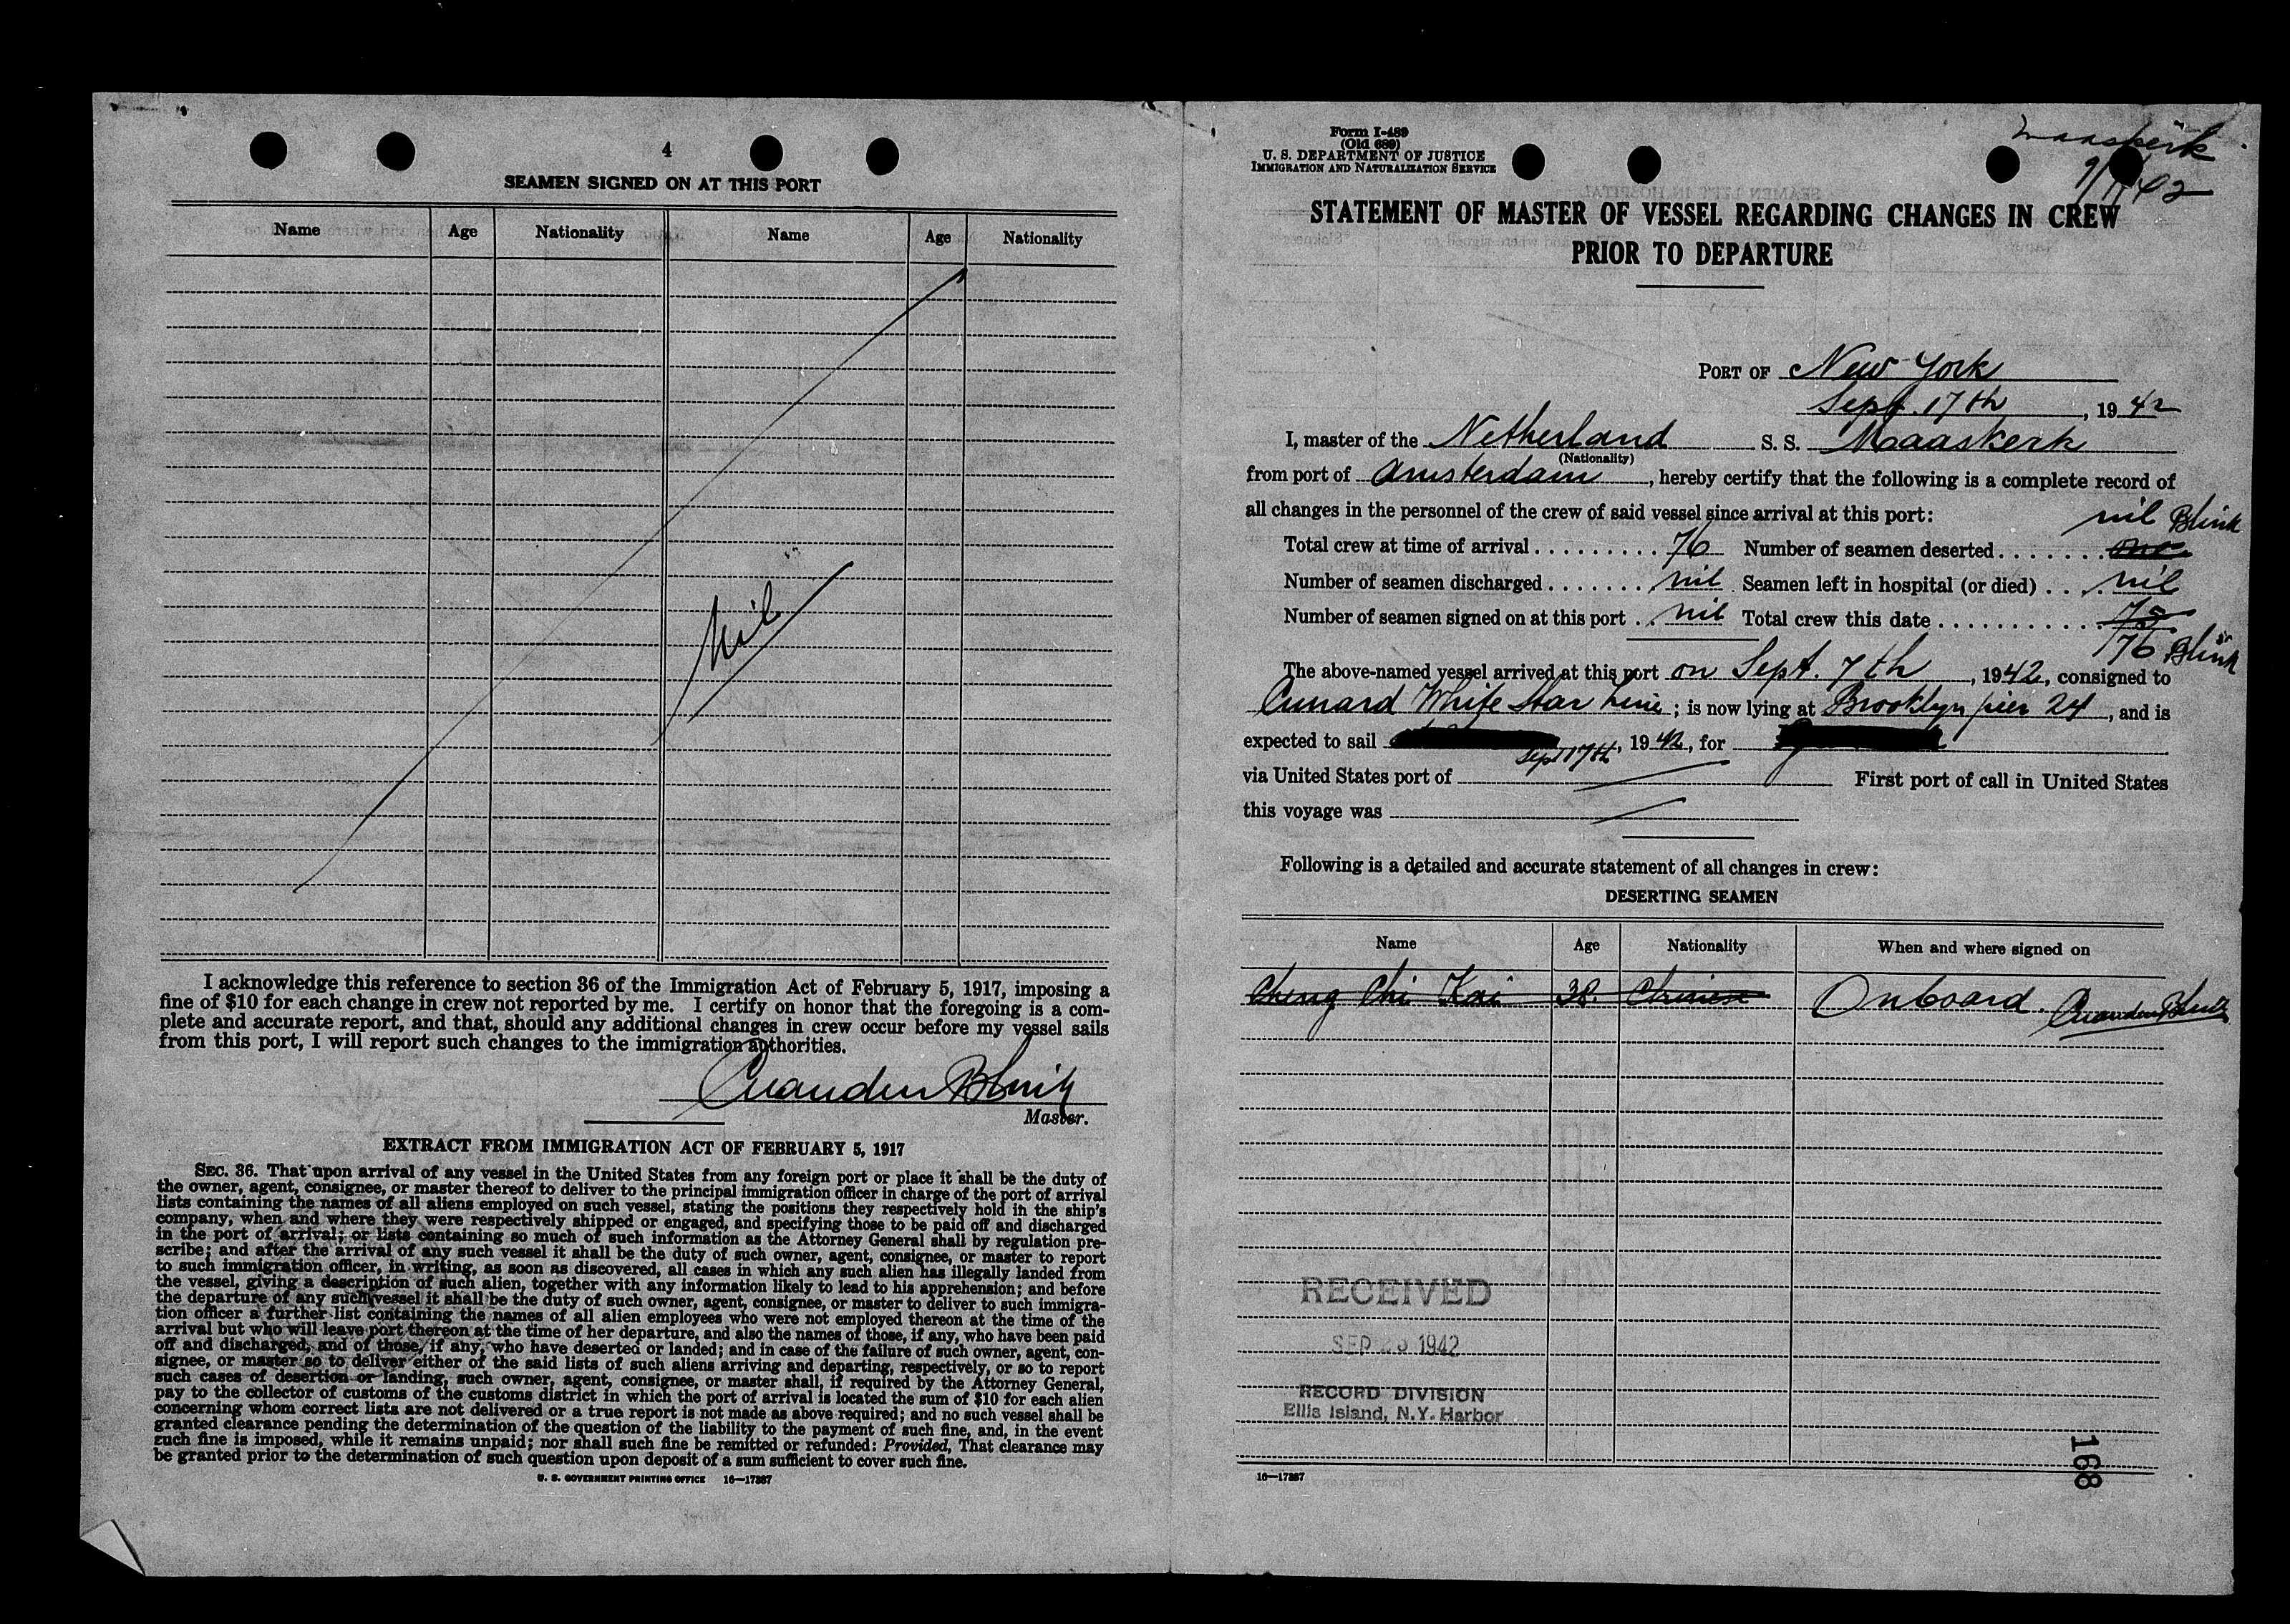 4
SEAMEN SIGNED ON AT THIS PORT
Name Age Nationality Name Age Nationality
Nil
I acknowledge this reference to section 36 of the Immigration Act of February 5, 1917, imposing a
fine of $10 for each change in crew not reported by me. I certify on honor that the foregoing is a com-
plete and accurate report, and that, should any additional changes in crew occur before my vessel sails
from this port, I will report such changes to the immigration authorities.
Master.
EXTRACT FROM IMMIGRATION ACT OF FEBRUARY 5, 1917
SEC. 36. That upon arrival of any vessel in the United States from any foreign port or place it shall be the duty of
the owner, agent, consignee, or master thereof to deliver to the principal immigration officer in charge of the port of arrival
lists containing the names of all aliens employed on such vessel, stating the positions they respectively hold in the ship's
company, when and where they were respectively shipped or engaged, and specifying those to be paid off and discharged
in the port of arrival; or lists containing so much of such information as the Attorney General shall by regulation pre-
scribe; and after the arrival of any such vessel it shall be the duty of such owner, agent, consignee, or master to report
to such immigration officer, in writing, as soon as discovered, all cases in which any such alien has illegally landed from
the vessel, giving a description of such alien, together with any information likely to lead to his apprehension; and before
the departure of any such vessel it shall be the duty of such owner, agent, consignee, or master to deliver to such immigra-
tion officer a further list containing the names of all alien employees who were not employed thereon at the time of the
arrival but who will leave port thereon at the time of her departure, and also the names of those, if any, who have been paid
off and discharged, and of those, if any, who have deserted or landed; and in case of the failure of such owner, agent, con-
signee, or master so to deliver either of the said lists of such aliens arriving and departing, respectively, or so to report
such cases of desertion or landing, such owner, agent, consignee, or master shall, if required by the Attorney General,
pay to the collector of customs of the customs district in which the port of arrival is located the sum of $10 for each alien
concerning whom correct lists are not delivered or a true report is not made as above required; and no such vessel shall be
granted clearance pending the determination of the question of the liability to the payment of such fine, and, in the event
such fine is imposed, while it remains unpaid; nor shall such fine be remitted or refunded: Provided, That clearance may
be granted prior to the determination of such question upon deposit of a sum sufficient to cover such fine.
U. S. GOVERNMENT PRINTING OFFICE 16—17387
Form I-489
(Old 689)
U. S. DEPARTMENT OF JUSTICE
IMMIGRATION AND NATURALIZATION SERVICE
Maaskerk
STATEMENT OF MASTER OF VESSEL REGARDING CHANGES IN CREW
PRIOR TO DEPARTURE
PORT OF New York
Sept. 17th, 1942
I, master of the Netherland S. S. Maaskerk
(Nationality)
from port of Amsterdam, hereby certify that the following is a complete record of
all changes in the personnel of the crew of said vessel since arrival at this port: nil Blink
Total crew at time of arrival . . . . . . . . . . 76 Number of seamen deserted . . . . . . . one
Number of seamen discharged . . . . . . . nil Seamen left in hospital (or died) . . . . nil
Number of seamen signed on at this port . . nil Total crew this date . . . . . . . . . . . . 75
76 Blink
The above-named vessel arrived at this port on Sept. 7th, 1942, consigned to
Cunard White Star Line; is now lying at Brooklyn pier 24, and is
expected to sail Sept 17th, 1942, for
via United States port of First port of call in United States
this voyage was
Following is a detailed and accurate statement of all changes in crew:
DESERTING SEAMEN
Name Age Nationality When and where signed on
Cheng Chi Kai 38. Chinese Onboard.
RECEIVED
SEP 23 1942
RECORD DIVISION
Ellis Island, N.Y. Harbor
16—17387
168